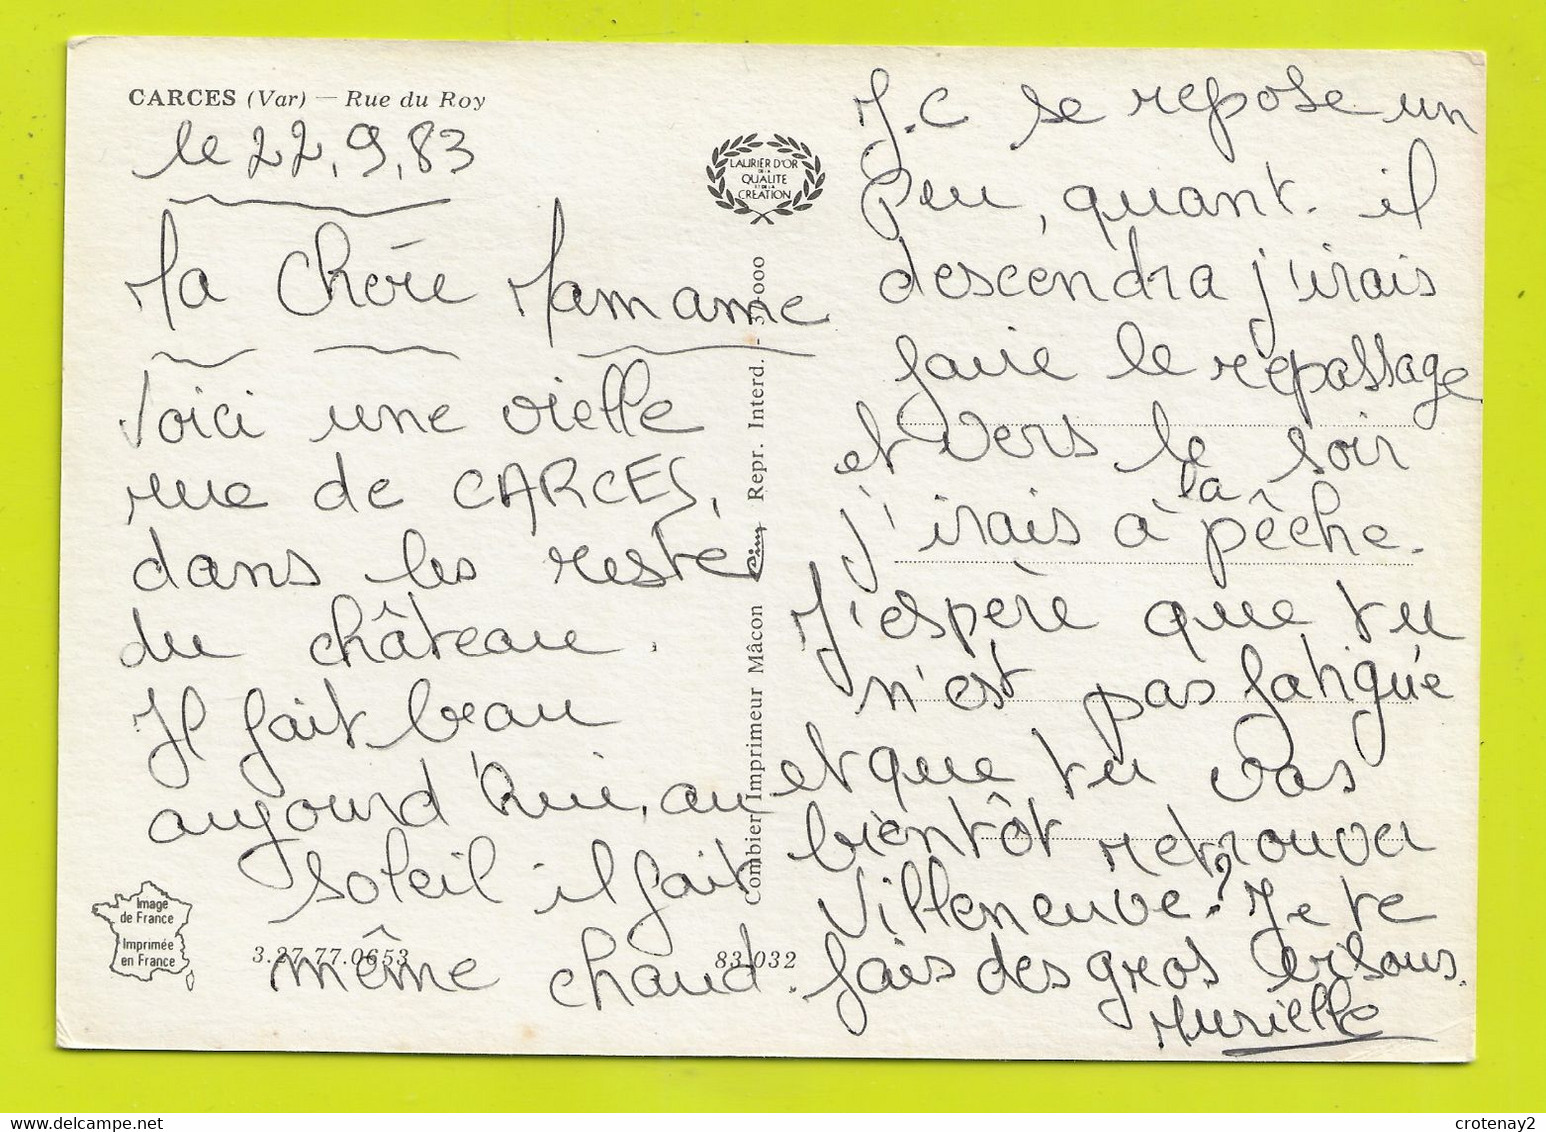 CARCES (Var) — Rue du Roy
le 22.9.83
Ma Chère Mamame
Voici une vielle
rue de CARCES,
dans les reste
du château.
Il fait beau
aujourd'hui, au
soleil il fait
même chaud.
LAURIER D'OR
DE LA
QUALITE
ET DE LA
CREATION
Combier Imprimeur Mâcon Cim Repr. Interd.
Image
de France
Imprimée
en France
3.27.77.0653
83.032
J.C se repose un
peu, quant il
descendra j'irais
faire le repassage
et vers le soir
j'irais à la pêche.
J'espère que tu
n'est pas fatiguée
et que tu vas
bientôt retrouver
Villeneuve? Je te
fais des gros bisous.
Murielle
crotenay2